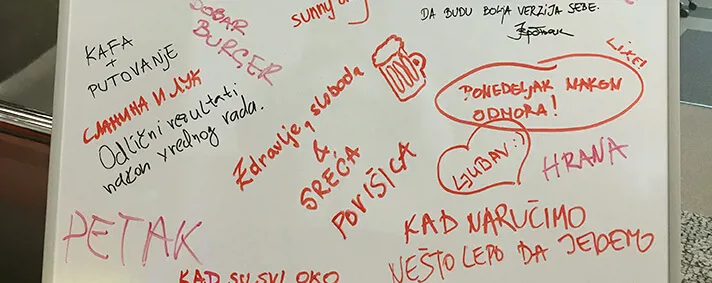 sunny
DA BUDU BOLJA VERZIJA SEBE.
DOBAR
BURGER
KAFA
+
PUTOVANJE
СЛАНИНА И ЛУК
Odlični rezultati
nakon vrednog rada.
Zdravlje, sloboda
&
SREĆA
POVIŠICA
LIKE!
PONEDELJAK NAKON
ODMORA!
LJUBAV :)
HRANA
PETAK
KAD NARUČIMO
NEŠTO LEPO DA JEDEMO
KAD SU SVI OKO